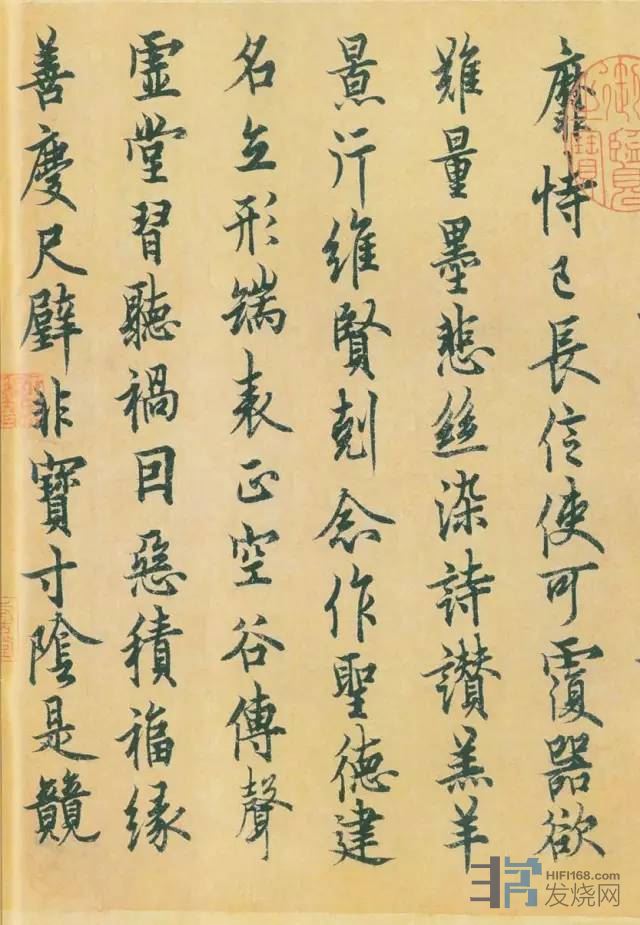 靡恃己長信使可覆器欲
難量墨悲絲染詩讃羔羊
景行維賢剋念作聖德建
名立形端表正空谷傳聲
虛堂習聽禍因惡積福緣
善慶尺璧非寶寸陰是競
御覽
之寶
HIFI168.com
发烧网